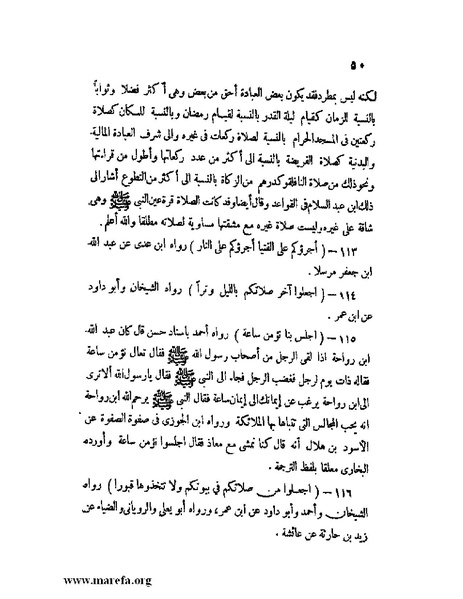 ٥٠
لكنه ليس بمطرد فقد يكون بعض العبادة أحق من بعض وهى أكثر فضلا وثواباً
بالنسبة للزمان كقيام ليلة القدر بالنسبة لقيام رمضان وبالنسبة للمكان كصلاة
ركعتين فى المسجد الحرام بالنسبة لصلاة ركعات فى غيره والى شرف العبادة المالية
والبدنية كصلاة الفريضة بالنسبة الى أكثر من عدد ركعاتها وأطول من قراءتها
ونحو ذلك من صلاة النافلة وكدرهم من الزكاة بالنسبة الى أكثر من التطوع أشار الى
ذلك ابن عبد السلام فى القواعد وقال أيضا وقد كانت الصلاة قرة عين النبى ﷺ وهى
شاقة على غيره وليست صلاة غيره مع مشقتها مساوية لصلاته مطلقا والله أعلم .
١١٣ – ( أجرؤكم على الفتيا أجرؤكم على النار ) رواه ابن عدى عن عبد الله
ابن جعفر مرسلا .
١١٤ – ( اجعلوا آخر صلاتكم بالليل وتراً ) رواه الشيخان وأبو داود
عن ابن عمر .
١١٥ – ( اجلس بنا نؤمن ساعة ) رواه أحمد باسناد حسن قال كان عبد الله
ابن رواحة اذا لقى الرجل من أصحاب رسول الله ﷺ فقال تعال نؤمن ساعة
فقاله ذات يوم لرجل فغضب الرجل فجاء الى النبى ﷺ فقال يارسول الله ألا ترى
الى ابن رواحة يرغب عن إيمانك الى إيمان ساعة فقال النبى ﷺ يرحم الله ابن رواحة
انه يحب المجالس التى تتباها بها الملائكة ورواه ابن الجوزى فى صفوة الصفوة عن
الأسود بن هلال أنه قال كنا نمشى مع معاذ فقال اجلسوا نؤمن ساعة وأورده
البخارى معلقا بلفظ الترجمة .
١١٦ – ( اجعلوا من صلاتكم فى بيوتكم ولا تتخذوها قبورا ) رواه
الشيخان وأحمد وأبو داود عن ابن عمر، ورواه أبو يعلى والرويانى والضياء عن
زيد بن حارثة عن عائشة .
www.marefa.org